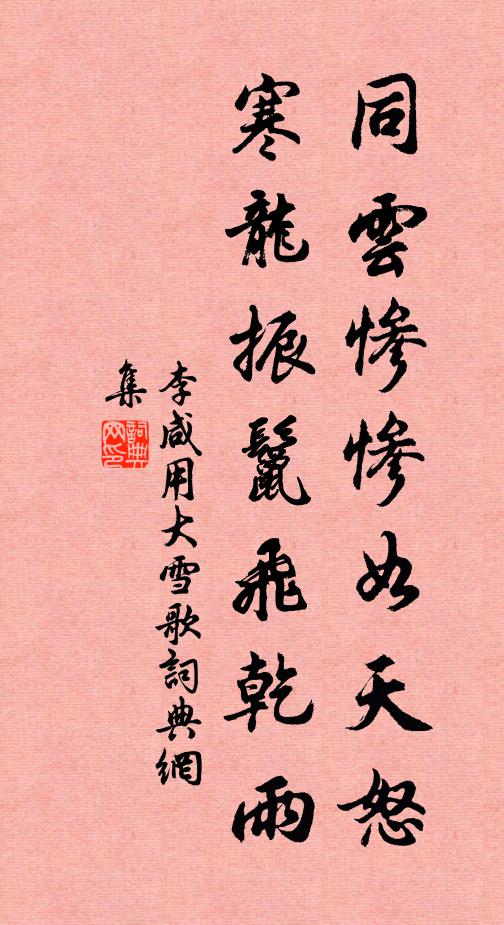 同雲慘慘如天怒
寒龍振鬣飛乾雨
李咸用大雪歌詞典網
集
詞典
网印